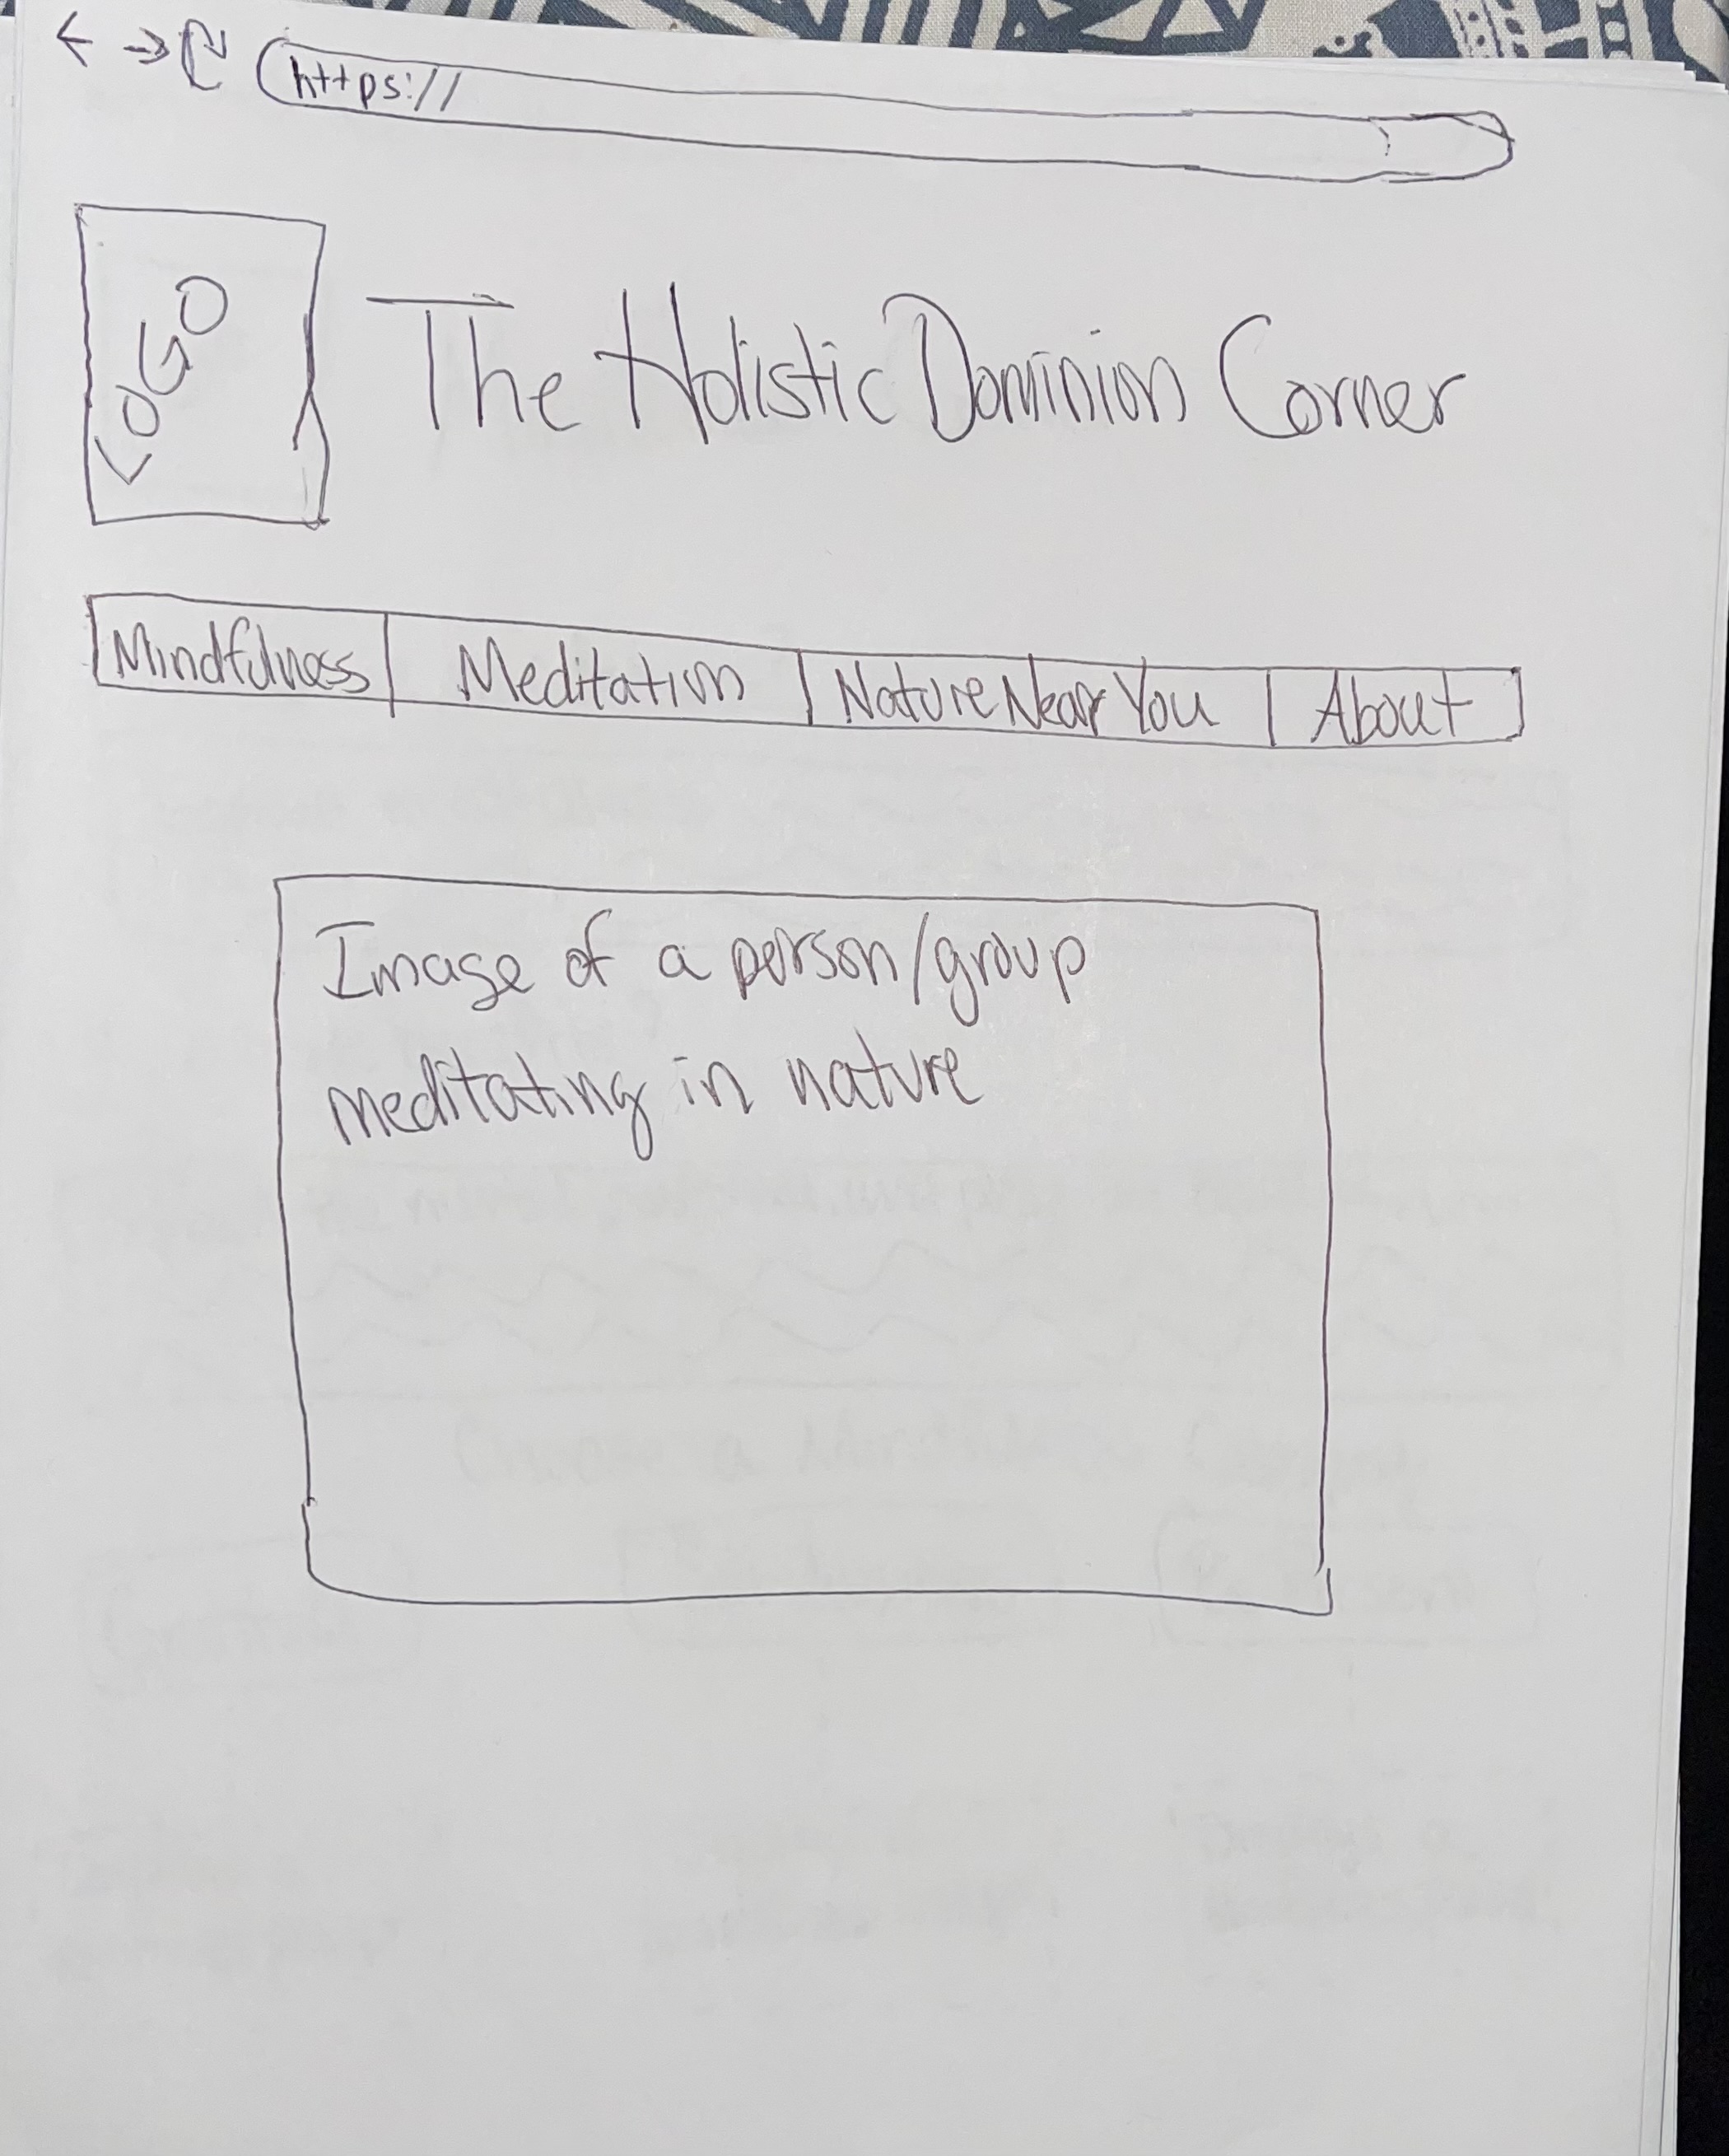 https://
LOGO
The Holistic Dominion Corner
Mindfulness Meditation Nature Near You About
Image of a person/group
meditating in nature